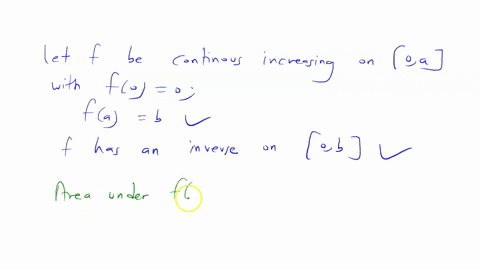 let f be continous increasing on [0,a]
with f(0) = 0;
f(a) = b ✓
f has an inverse on [0,b] ✓
Area under f(